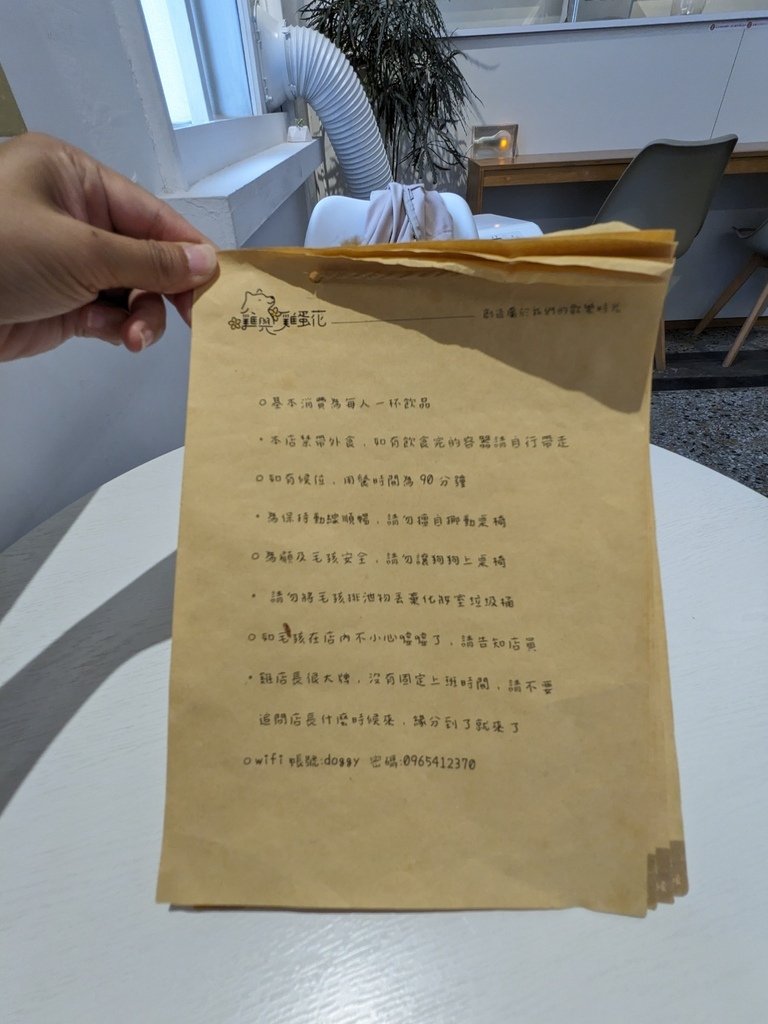 雞與雞蛋花
創造屬於我們的歡樂時光
基本消費為每人一杯飲品
本店禁帶外食，如有飲食完的容器請自行帶走
如有候位，用餐時間為90分鐘
為保持動線順暢，請勿擅自挪動桌椅
為顧及毛孩安全，請勿讓狗狗上桌椅
請勿將毛孩排泄物丟棄化妝室垃圾桶
如毛孩在店內不小心噓噓了，請告知店員
雞店長很大牌，沒有固定上班時間，請不要
追問店長什麼時候來，緣分到了就來了
wifi 帳號:doggy 密碼:0965412370